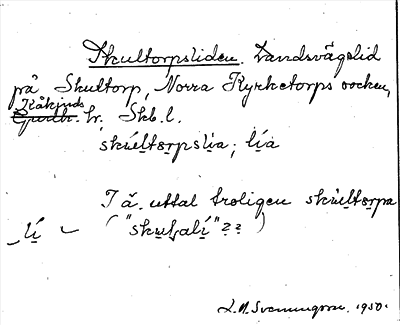 Skultorpsliden. Landsvägslid
på Skultorp, Norra Kyrketorps socken,
Kåkinds
Gudh. hr. Skb. l.
skúltorpslia; lía
I ä. uttal troligen skùltorpa
lí (
"skuṭalí"?? )
L. M. Svenungsson. 1950.